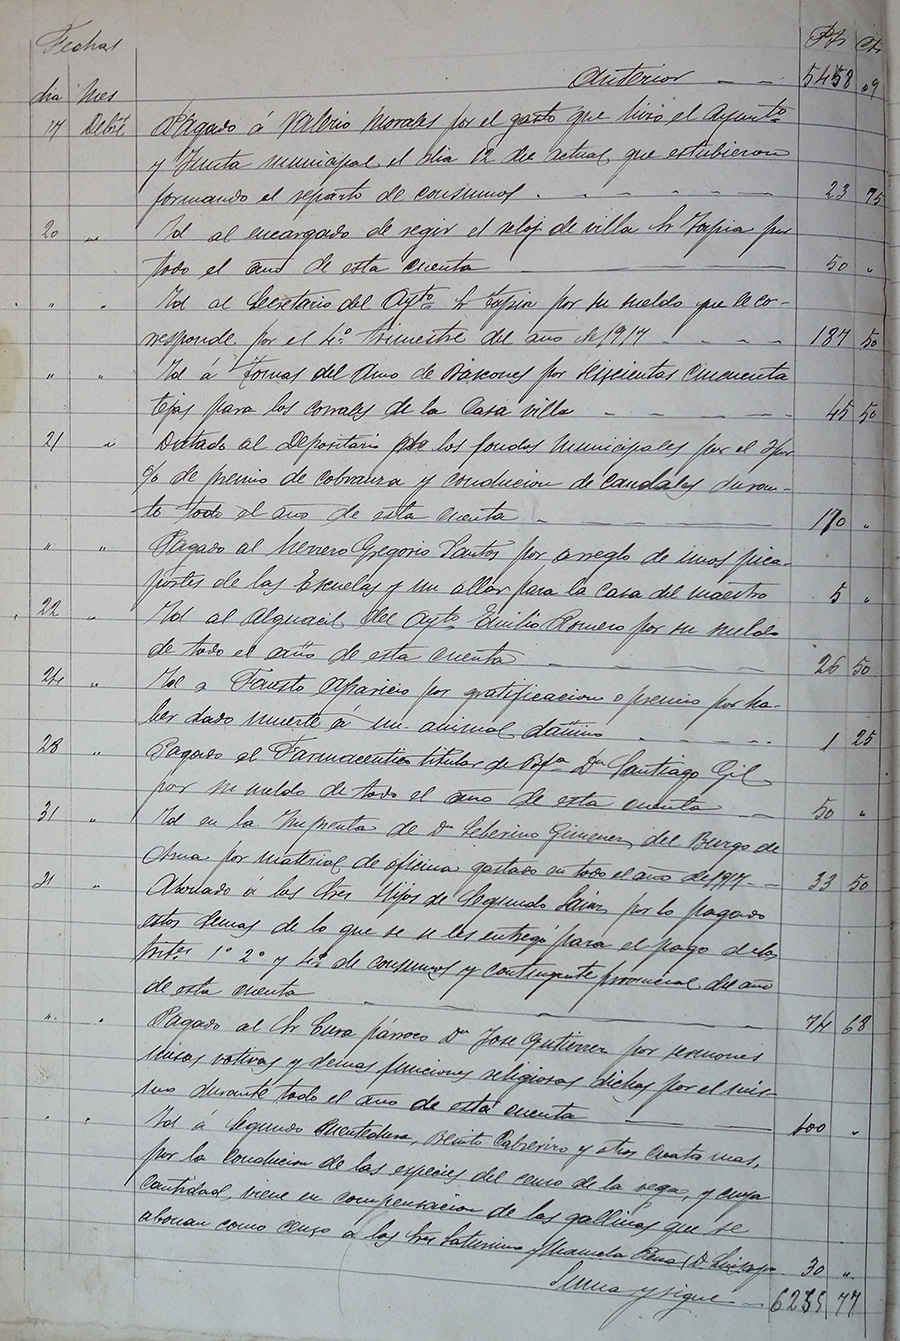 Fechas Pts Cts
dia Mes Anterior 5458 09
17 Dbre Pagado á Valerio Morales por el gasto que hizo el Ayuntº
y Junta municipal el dia 12 del actual, que estubieron
formando el reparto de consumos 23 75
20 " Id al encargado de regir el reloj de villa Sr Tapia por
todo el año de esta cuenta 50 "
" " Id al Secretario del Aytº Sr Tapia por su sueldo que le cor-
responde por el 4º trimestre del año de 1917 187 50
" " Id á Tomas del Amo de Rascones por seiscientas cincuenta
tejas para los corrales de la Casa villa 45 50
21 " Datado al Depositario de los fondos municipales por el 2 por
% de premio de cobranza y conducion de caudales duran-
te todo el año de esta cuenta 170 "
" " Pagado al herrero Gregorio Santos por arreglo de unos pica-
portes de las Escuelas y un allar para la casa del maestro 5 "
22 " Id al Alguacil del Aytº Emilio Romero por su sueldo
de todo el año de esta cuenta 26 50
24 " Id a Fausto Aparicio por gratificacion o premio por ha-
ber dado muerte á un animal dañino 1 25
28 " Pagado al Farmaceutico titular de Dn Santiago Gil
por su sueldo de todo el año de esta cuenta 50 "
31 " Id en la Imprenta de Dn Seberino Gimenez, del Burgo de
Osma por material de oficina gastado en todo el año de 1917 33 50
31 " Abonado á los tres Hijos de Segundo Sainz por lo pagado
estos demas de lo que se les entregó para el pago de los
trites 1º 2º y 4º de consumos y contingente provincial del año
de esta cuenta 74 68
" " Pagado al Sr Cura párroco Dn Jose Gutierrez por sermones
misas votivas y demas funciones religiosas dichas por el mis-
mo durante todo el año de esta cuenta 100 "
" " Id á Segundo Fuentedura, Benito Cabrerizo y otros cuatro mas,
por la conducion de las especies del censo de la vega, y cuya
cantidad, viene en compensacion de las gallinas que se
abonan como censo a los Sres Saturnino y Manuela 30 "
Suma y sigue 6235 77